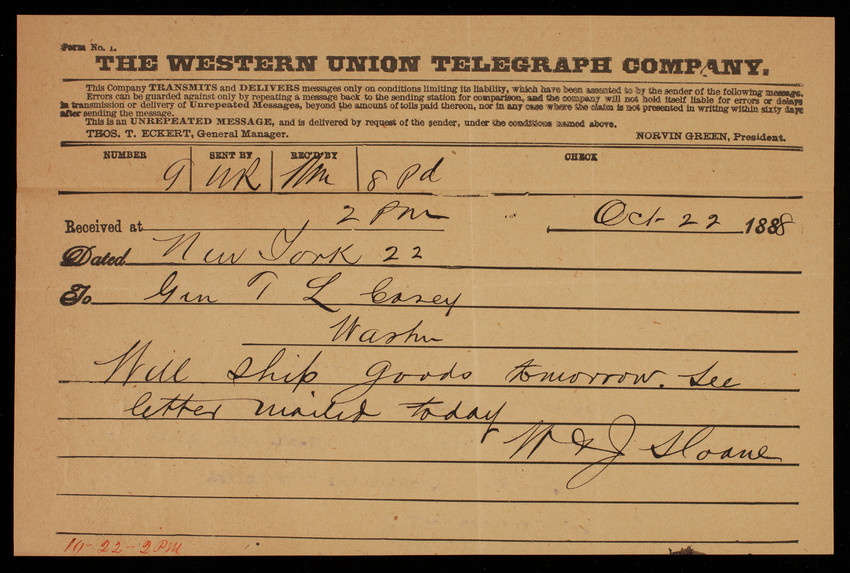 Form No. 1.
THE WESTERN UNION TELEGRAPH COMPANY.
This Company TRANSMITS and DELIVERS messages only on conditions limiting its liability, which have been assented to by the sender of the following message.
Errors can be guarded against only by repeating a message back to the sending station for comparison, and the company will not hold itself liable for errors or delays
in transmission or delivery of Unrepeated Messages, beyond the amount of tolls paid thereon, nor in any case where the claim is not presented in writing within sixty days
after sending the message.
This is an UNREPEATED MESSAGE, and is delivered by request of the sender, under the conditions named above.
THOS. T. ECKERT, General Manager. NORVIN GREEN, President.
NUMBER SENT BY REC'D BY CHECK
9 8 Pd
Received at 2 PM Oct 22 1888
Dated New York 22
To Gen T L Casey
Washn
Will ship goods tomorrow. See
letter mailed today
W & J Sloane
10-22-2PM